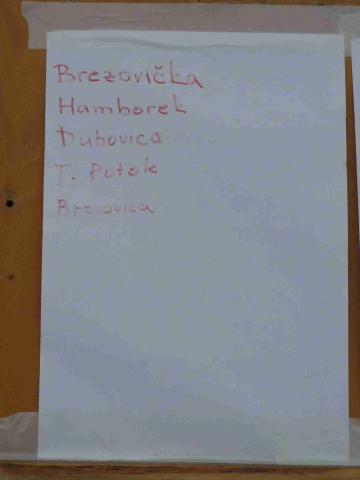 Brezovička
Hamborek
Dubovica
T. Potok
Brezovica